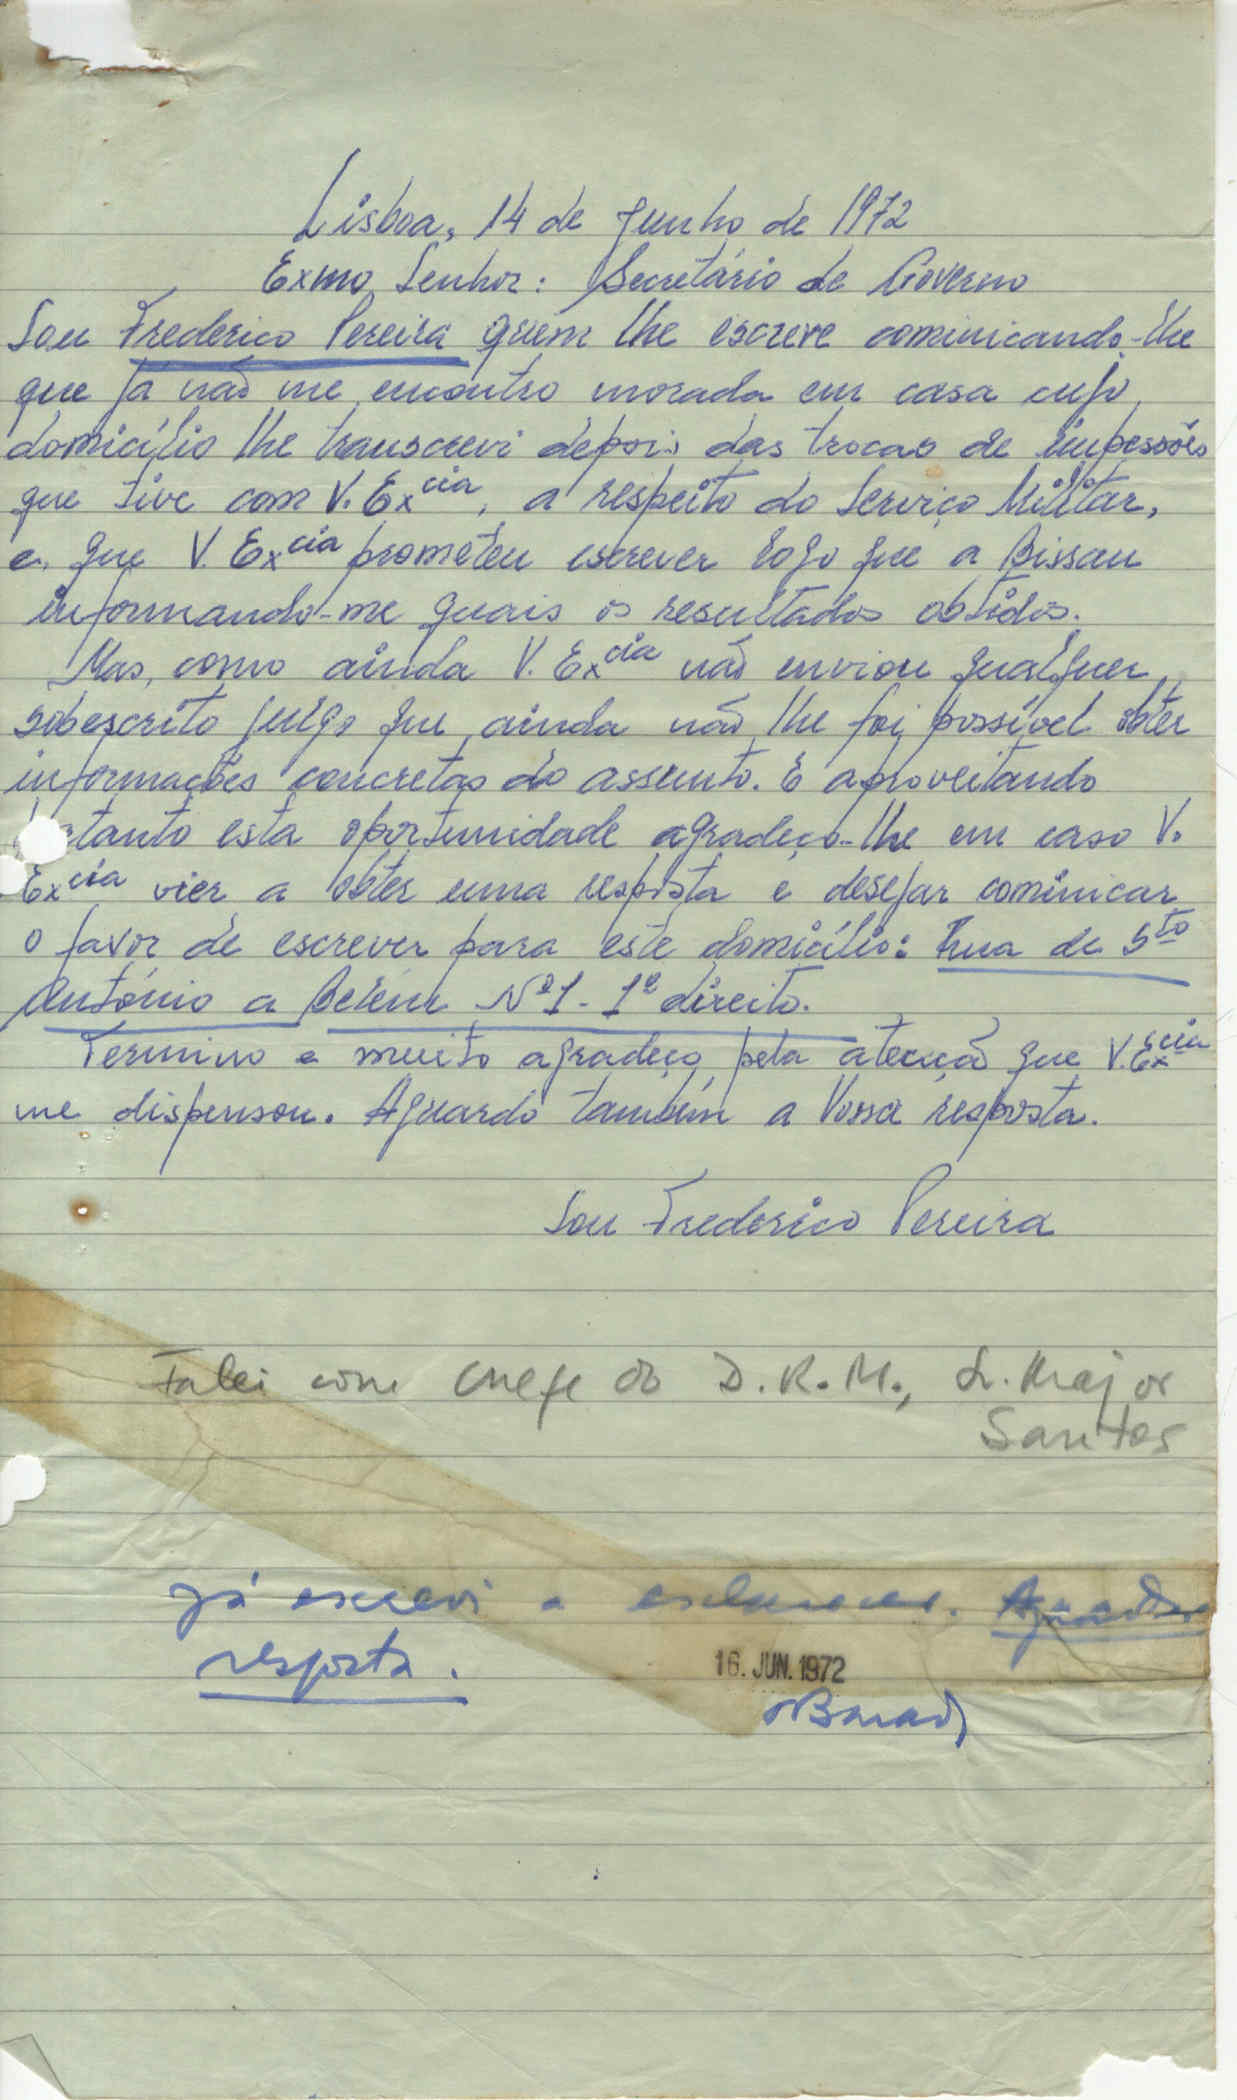 Lisboa, 14 de Junho de 1972
Exmo Senhor: Secretário de Governo
Sou Frederico Pereira quem lhe escreve cominicando-lhe
que já não me encontro morada em casa cujo
domicílio lhe transcrevi depois das trocas de impessões
que tive com V. Excia, a respeito do Serviço Militar,
e, que V. Excia prometeu escrever logo que a Bissau
informando-me quais os resultados obtidos.
Mas, como ainda V. Excia não enviou qualquer
sobescrito julgo que ainda não lhe foi possível obter
informações concretas do assunto. E aproveitando
tanto esta oportunidade agradeço-lhe em caso V.
Excia vier a obter uma resposta e desejar cominicar
o favor de escrever para este domicílio: Rua de Sto
António a Belém Nº1 - 1º direito.
Termino e muito agradeço pela atenção que V. Excia
me dispensou. Aguardo também a Vossa resposta.
Sou Frederico Pereira
Falei com chefe do D.R.M., Sr. Major
Santos
Já escrevi a esclarecer. Aguardo
resposta.
16. JUN. 1972